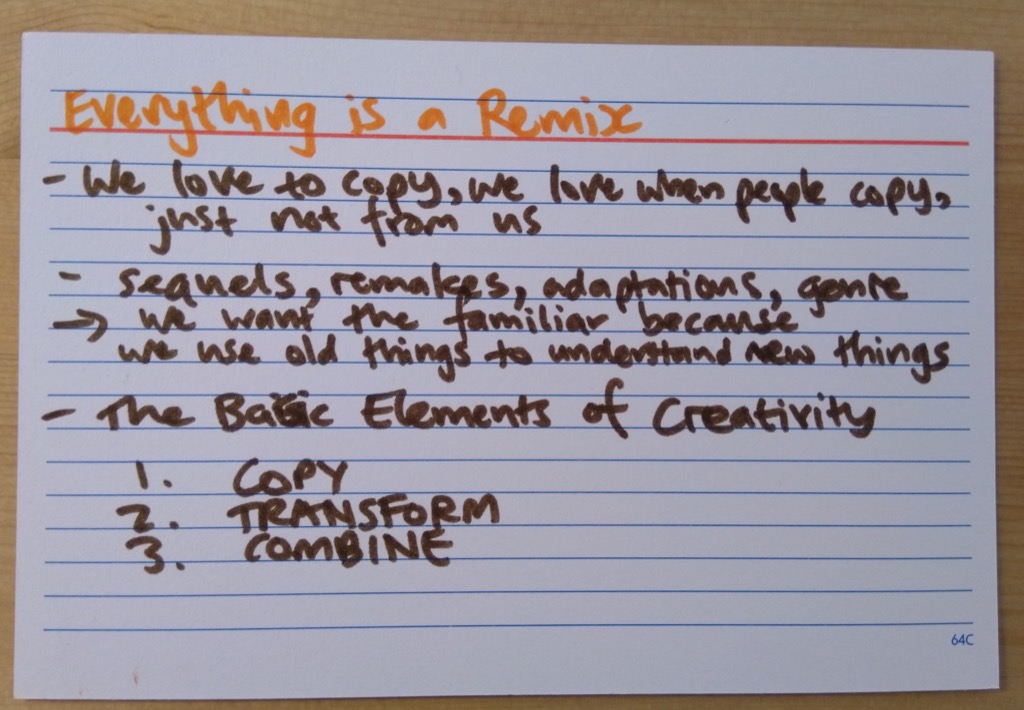 Everything is a Remix
- We love to copy, we love when people copy,
just not from us
- sequels, remakes, adaptations, genre
→ we want the familiar because
we use old things to understand new things
- The Basic Elements of Creativity
1. COPY
2. TRANSFORM
3. COMBINE
64C